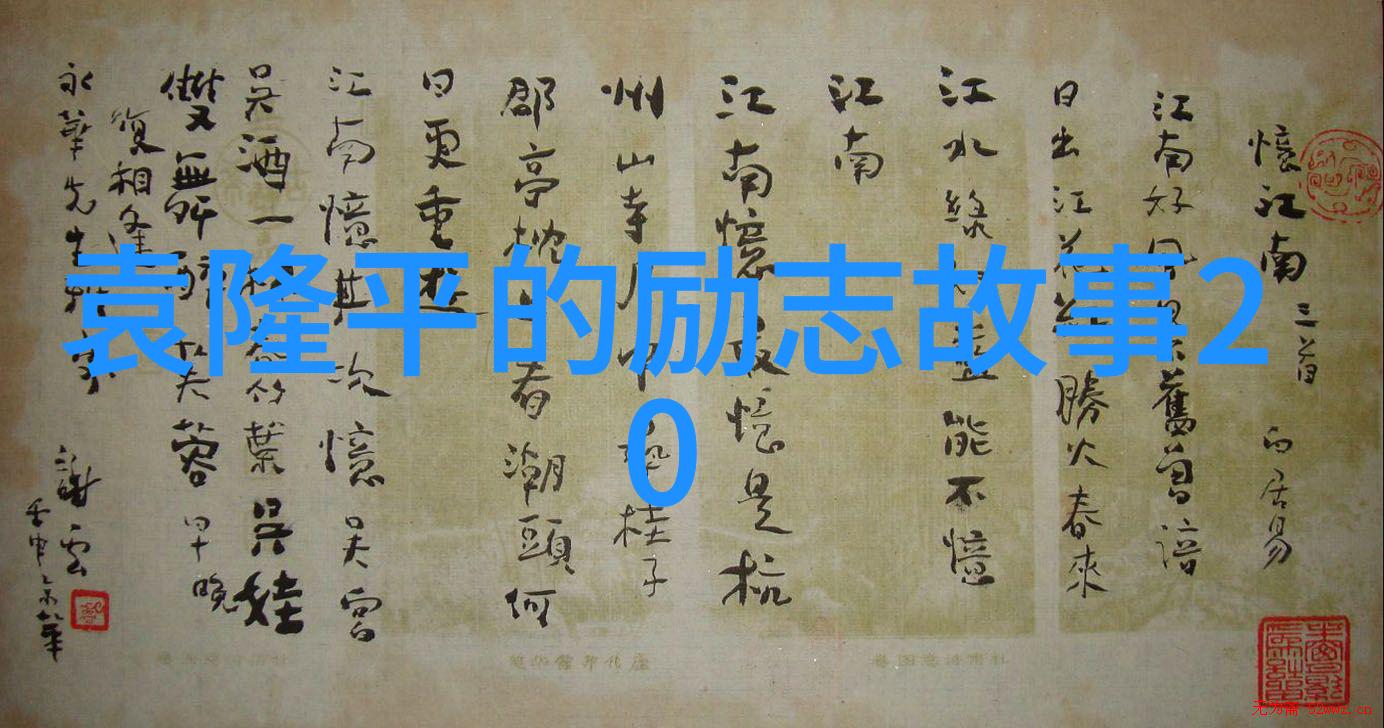 袁隆平的励志故事2
0
憶江南 三首 白居易
江南好風 舊曾諳
日出江花 勝火春來
江水綠 藍能不憶
江南
江南憶最憶是杭
州山寺月中 桂子
郡亭枕上看潮頭何
日更重遊
江南憶其次憶吳宮
吳酒一杯春竹葉吳娃
雙舞 芙蓉早晚
復相逢
永華先生
謝雲
壬申 京華
无为斋